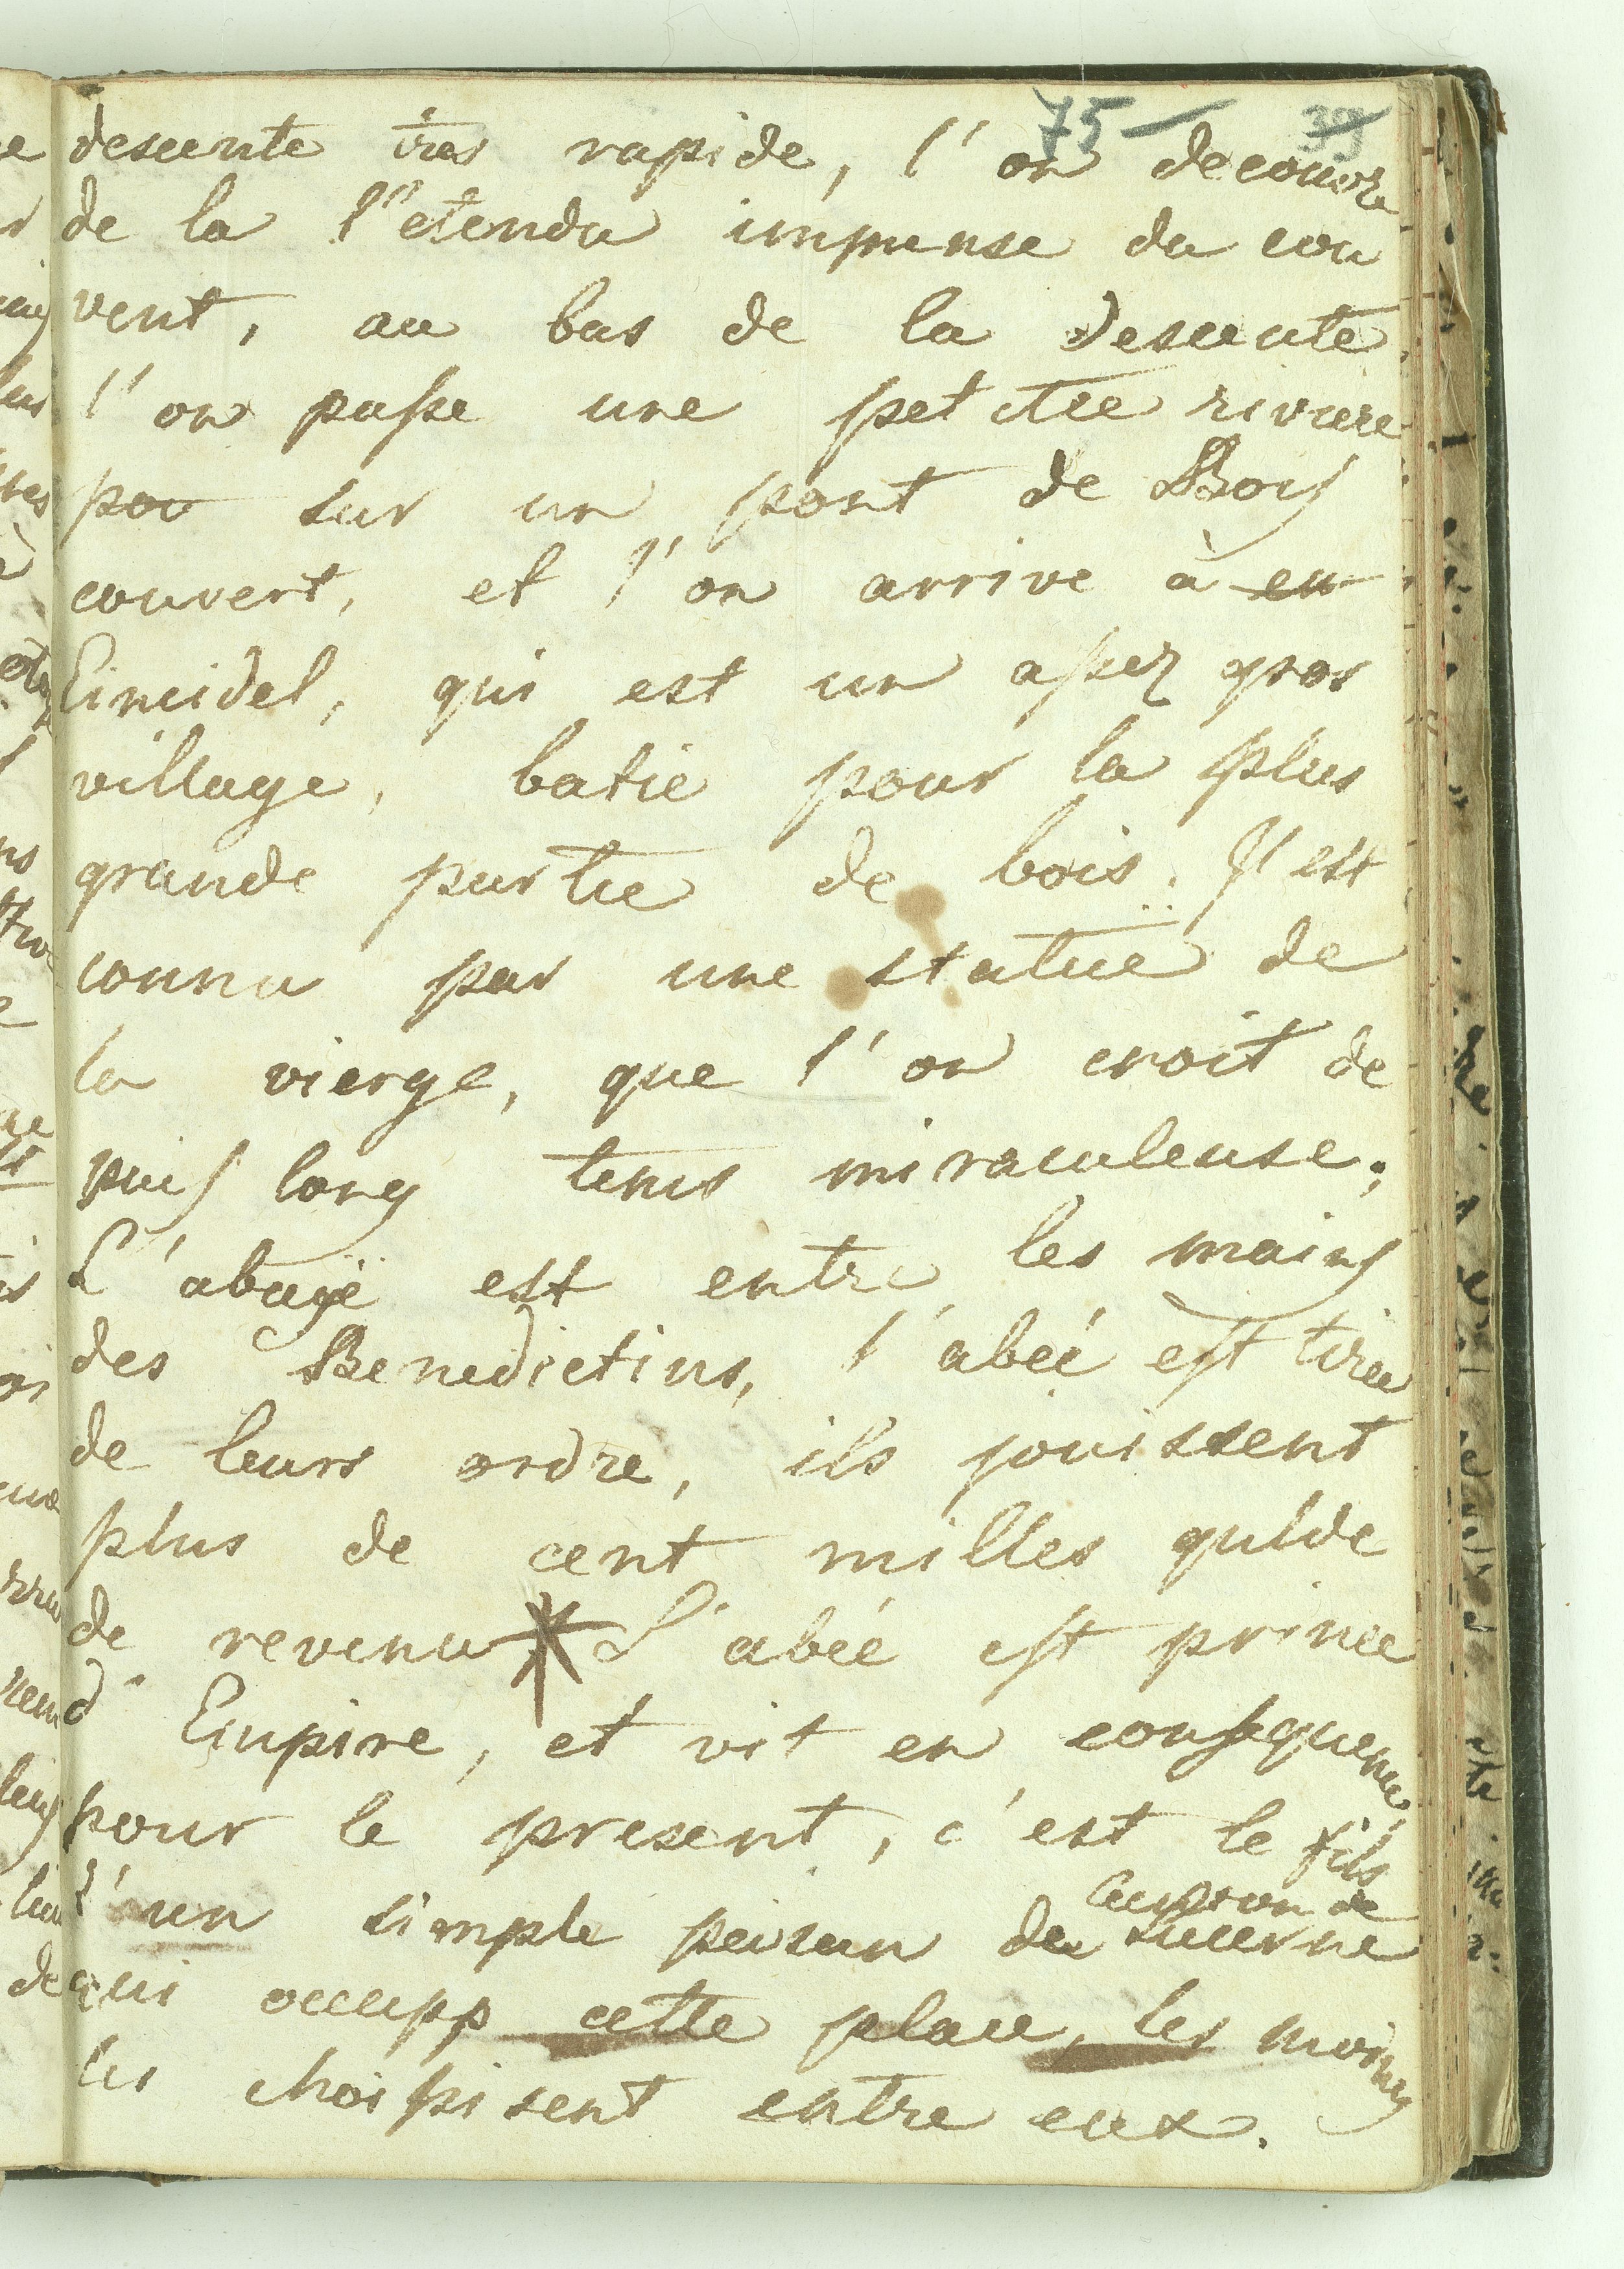 75 39
descente tres rapide, l'on decouvre
de la l'etendu immense du cou
vent, au bas de la descente
l'on passe une petitee riviere
pou sur un pont de Bois
couvert, et l'on arrive à en
Eincidel, qui est un assez gros
village, batie pour la plus
grande partie de bois. Il est
connu par une statue de
la vierge, que l'on croit de
puis long tems miraculeuse;
L'abayë est entre les mains
des Benedictins, l'abéé est tiree
de leurs ordre, ils jouissent
plus de cent milles gulde
de revenu L'abéé est prince
d'Empire, et vit en consequence,
pour le present, c'est le fils
d'un simple peisan du Canton de Lucerne
qui occupp cette place, les moines
les choisisent entre eux.